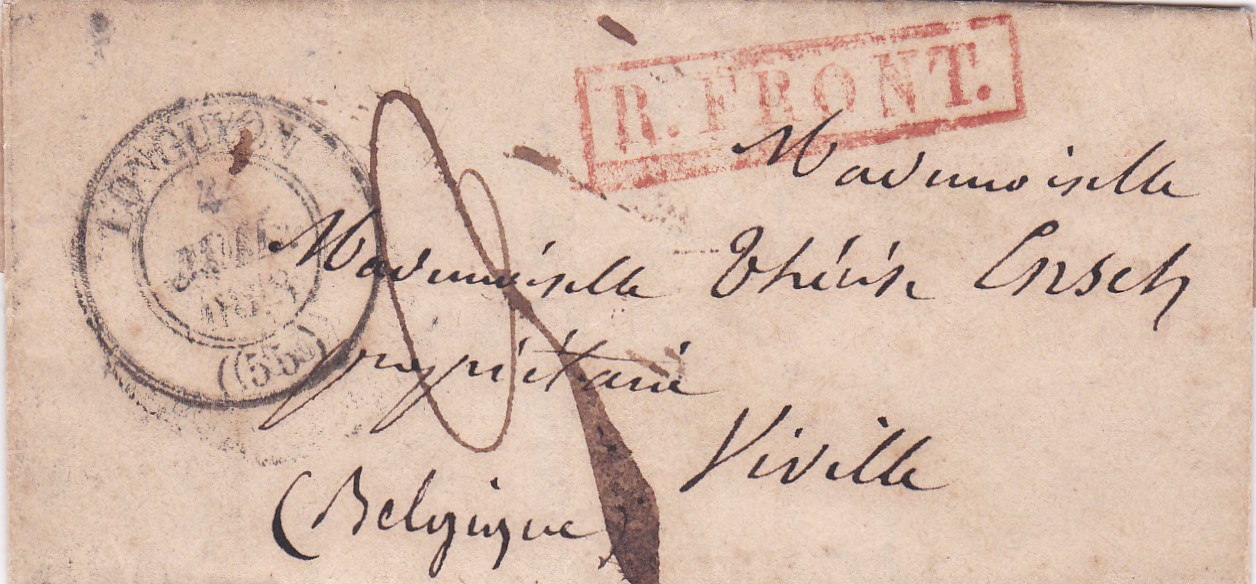 R. FRONT.
LONGUYON
(55)
Mademoiselle
Mademoiselle Thérèse Ensch
propriétaire
Viville
(Belgique)